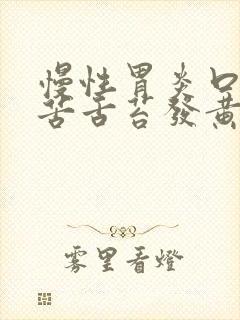 慢性胃炎口
苦舌苔發黃
雾里看燈